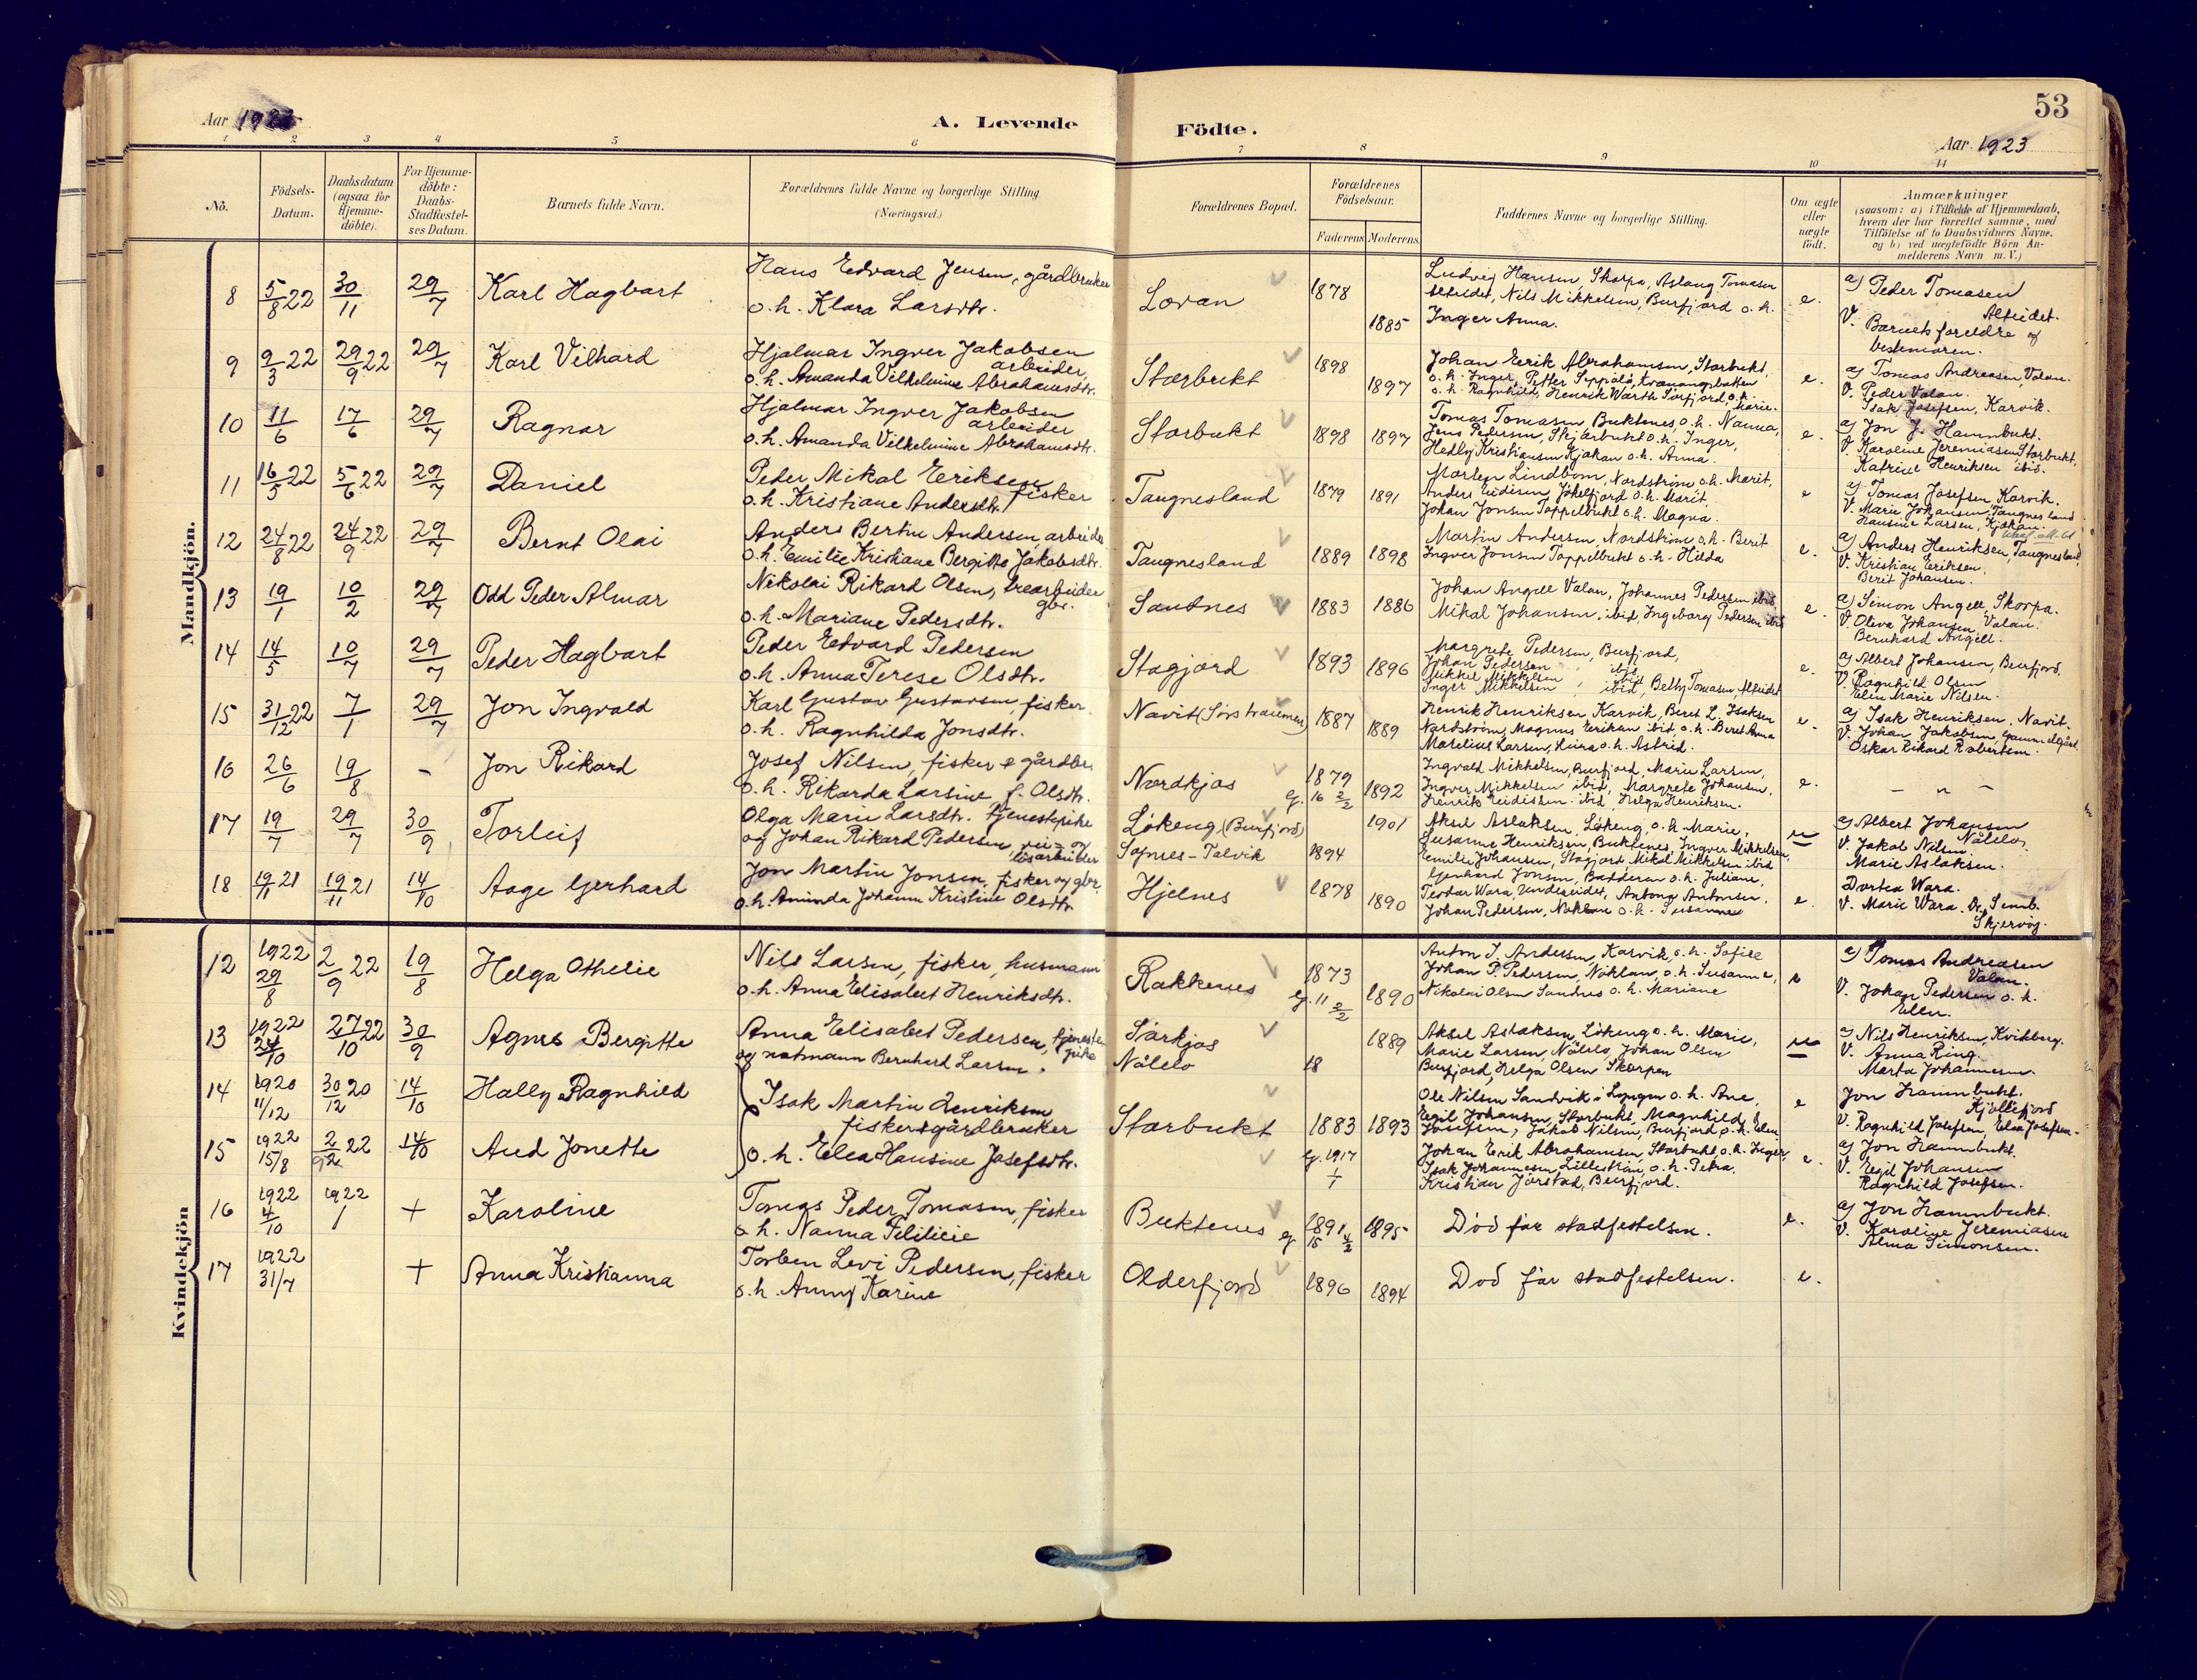 53
Aar 1923
A. Levende Födte.
Aar 1923
1 2 3 4 5 6 7 8 9 10 11
No.
Födsels-Datum.
Daabsdatum (ogsaa for Hjemme-döbte).
For Hjemme-döbte: Daabs-Stadfæstel-ses Datum.
Barnets fulde Navn.
Forældrenes fulde Navne og borgerlige Stilling
(Næringsvei.)
Forældrenes Bopæl.
Forældrenes Födselsaar.
Faderens Moderens
Faddernes Navne og borgerlige Stilling.
Om ægte eller uægte födt.
Anmærkninger
(saasom: a) i Tilfælde af Hjemmedaab,
hvem der har forrettet samme, med
Tilföielse af to Daabsvidners Navne,
og b) ved uægtefödte Börn An-
melderens Navn m. V.)
Mandkjön.
8 5/8 22 30/11 29/7 Karl Hagbart
Hans Edvard Jensen, gårdbruker
o. h. Klara Larsdtr.
Lovan 1878 1885
Ludvig Hansen, Skorpa, Aslaug Tomasen
Alteidet, Nils Mikkelsen, Burfjord o. h.
Inger Anna.
e.
a) Peder Tomasen
Alteidet.
V. Barnets foreldre og
bestemoren.
9 9/3 22 29/9 22 29/7 Karl Vilhard
Hjalmar Ingver Jakobsen
arbeider,
o. h. Amanda Vilhelmine Abrahamsdtr.
Storbukt 1898 1897
Johan Erik Abrahamsen, Storbukt,
o. h. Inger, Petter Seppälä, Kvænangsbotten
o. h. Ragnhild, Henrik Warth Sörfjord, o. h.
Marie.
e.
a) Tomas Andreasen, Valan.
V. Peder Valan.
Isak Josefsen, Karvik.
10 11/6 17/6 29/7 Ragnar
Hjalmar Ingver Jakobsen
arbeider
o. h. Amanda Vilhelmine Abrahamsdtr.
Storbukt 1898 1897
Tomas Tomasen Buktenes, o. h. Nanna,
Jens Pedersen, Skjærbukt o. h. Inger,
Hedly Kristiansen Kjækan o. h. Anna.
e.
a) Jon J. Hamnbukt.
V. Karoline Jeremiasen Storbukt,
Katrine Henriksen ibid.
11 16/5 22 5/6 22 29/7 Daniel
Peder Mikal Eriksen
fisker
o. h. Kristiane Andersdtr.
Tangnesland 1879 1891
Morten Lindbom, Nordström o. h. Marit,
Anders Eidisen, Jökelfjord o. h. Marit,
Johan Jonsen Toppelbukt o. h. Magna.
e
a) Tomas Josefsen, Karvik.
V. Marie Johansen, Tangnesland
Hansine Larsen, Kjækan.
12 24/8 22 24/9 22 29/7 Bernt Olai
Anders Bertin Andersen arbeider
o. h. Emilie Kristiane Bergitte Jakobsdtr.
Tangnesland 1889 1898
Martin Andersen Nordström o. h. Berit
Ingver Jonsen Toppelbukt o. h. Hilda
e.
a) Anders Henriksen, Tangnesland,
V. Kristian Eriksen.
Berit Johansen.
13 19/1 10/2 29/7 Odd Peder Almar
Nikolai Rikard Olsen, trearbeider
gbr.
o. h. Mariane Pedersdtr.
Sandnes 1883 1886
Johan Angell Valan, Johannes Pedersen ibid,
Mikal Johansen, ibid, Ingeborg Pedersen ibid
e.
a) Simon Angell, Skorpa.
V. Oleva Johansen, Valan.
Bernhard Angell.
14 14/5 10/7 29/7 Peder Hagbart
Peder Edvard Pedersen
o. h. Anna Terese Olsdtr.
Stagjord 1893 1896
Margrete Pedersen, Burfjord,
Johan Pedersen ibid
Mikkel Mikkelsen ibid
Inger Mikkelsen, ibid, Betty Tomasen, Alteidet
e.
a) Albert Johansen, Burfjord.
V. Ragnhild Olsen
Elen Marie Nilsen.
15 31/12 22 7/1 29/7 Jon Ingvald
Karl Gustav Gustavsen, fisker.
o. h. Ragnhilda Jonsdtr.
Navit (Sörstraumen) 1887 1889
Henrik Henriksen Karvik, Beret L. Isaksen
Nordström, Magnus Eriksen ibid, o. h. Beret Anna
Marelius Larsen, o. h. Astrid.
e.
a) Isak Henriksen, Navit.
V. Johan Jakobsen, Gammelgård.
Oskar Rikard Robertsen.
16 26/6 19/8 - Jon Rikard
Josef Nilsen, fisker & gårdbr.
o. h. Rikarda Larsine f. Olsdtr.
Nordkjos g. 1879 16 2/2 1892
Ingvald Mikkelsen, Burfjord, Marie Larsen,
Ingver Mikkelsen ibid, Margrete Johansen,
Henrik Eidissen ibid, Helga Henriksen.
e.
- " -
17 19/7 29/7 30/9 Torleif
Olga Marie Larsdtr. tjenestepike
og Johan Rikard Pedersen,
lösarbeider
Lökeng (Burfjord) 1901
Sopnes - Talvik 1894
Aksel Aslaksen, Lökeng, o. h. Marie,
Susanne Henriksen, Buktenes, Ingver Mikkelsen,
Emilie Johansen, Stagjord, Mikal Mikkelsen ibid
u
a) Albert Johansen
Nålelo,
V. Jakob Nilsen.
Marie Aslaksen.
18 19/11 21 19/11 21 14/10 Aage Gerhard
Jon Martin Jonsen, fisker og gbr.
o. h. Aminda Johanne Kristine Olsdtr.
Hjelnes 1878 1890
Gerhard Jonsen, Badderen o. h. Juliane,
Teodor Wara, Undereidet, Antona Antonsen,
Johan Pedersen, Noklan o. h. Susanne
e.
Dortea Wara.
V. Marie Wara. Dr. Semb.
Skjervøy.
Kvindekjön
12 1922 29/8 2/9 22 19/8 Helga Othelie
Nils Larsen, fisker, husmann
o. h. Anna Elisabet Henriksdtr.
Rakkenes g. 1873 11 2/2 1890
Anton J. Andersen, Karvik, o. h. Sofie
Johan P. Pedersen, Noklan, o. h. Susanne,
Nikolai Olsen Sandnes o. h. Mariane
e
a) Tomas Andreasen
Valan.
V. Johan Pedersen o. h.
Ellen.
13 1922 24/10 27/10 22 30/9 Agnes Bergitte
Anna Elisabet Pedersen, tjeneste-
pike
og notmann Bernhard Larsen.
Sörkjos 1889
Nålelo 18
Aksel Aslaksen, Lökeng o. h. Marie,
Marie Larsen, Nålelo, Johan Olsen
Burfjord, Helga Olsen Skorpen
u
a) Nils Henriksen, Kvikberg.
V. Anna Ring.
Marta Johannesen.
14 1920 11/12 30/12 20 14/10 Hally Ragnhild
Isak Martin Henriksen
fisker & gårdbruker
Storbukt 1883 1893
Ole Nilsen Sandvik i Lyngen o. h. Ane,
Egil Johansen, Storbukt, Magnhild
Josefsen, Jakob Nilsen, Burfjord o. h. Elen.
e
Jon Hamnbukt.
Kjöllefjord
V. Ragnhild Josefsen, Elea Josefsen.
15 1922 15/8 2/9 22 14/10 Aud Jonette
o. h. Elea Hansine Josefsdtr.
g. 1917
Johan Erik Abrahamsen, Storbukt, o. h. Inger,
Isak Johannesen, Lilleström, o. h. Petra,
Kristian Jörstad, Burfjord.
e.
a) Jon Hamnbukt.
V. Egil Johansen
Ragnhild Josefsen.
16 1922 4/10 1922 / + Karoline
Tomas Peder Tomasen, fisker
o. h. Nanna Felicie
Buktenes g 1891 15 4/2 1895
Död för stadfestelsen.
e.
a) Jon Hamnbukt.
V. Karoline Jeremiasen
Alma Simonsen.
17 1922 31/7 + Anna Kristianna
Torben Levi Pedersen, fisker
o. h. Anny Karine
Olderfjord 1896 1894
Död för stadfestelsen.
e.